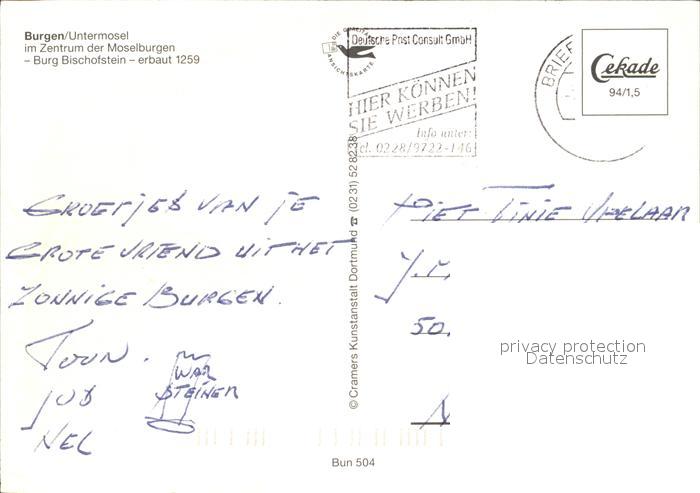 Burgen/Untermosel
im Zentrum der Moselburgen
– Burg Bischofstein – erbaut 1259
DIE QUALITÄTS
ANSICHTSKARTE
Deutsche Post Consult GmbH
HIER KÖNNEN
SIE WERBEN!
Info unter:
el. 0228/9722-146
BRIEF
Cekade
94/1,5
GROETJES VAN JE
GROTE VRIEND UIT HET
ZONNIGE BURGEN.
TOON.
JOS
NEL
WAR
STEINER
© Cramers Kunstanstalt Dortmund ☎ (0231) 528238
PIET TINIE
50.
privacy protection
Datenschutz
Bun 504